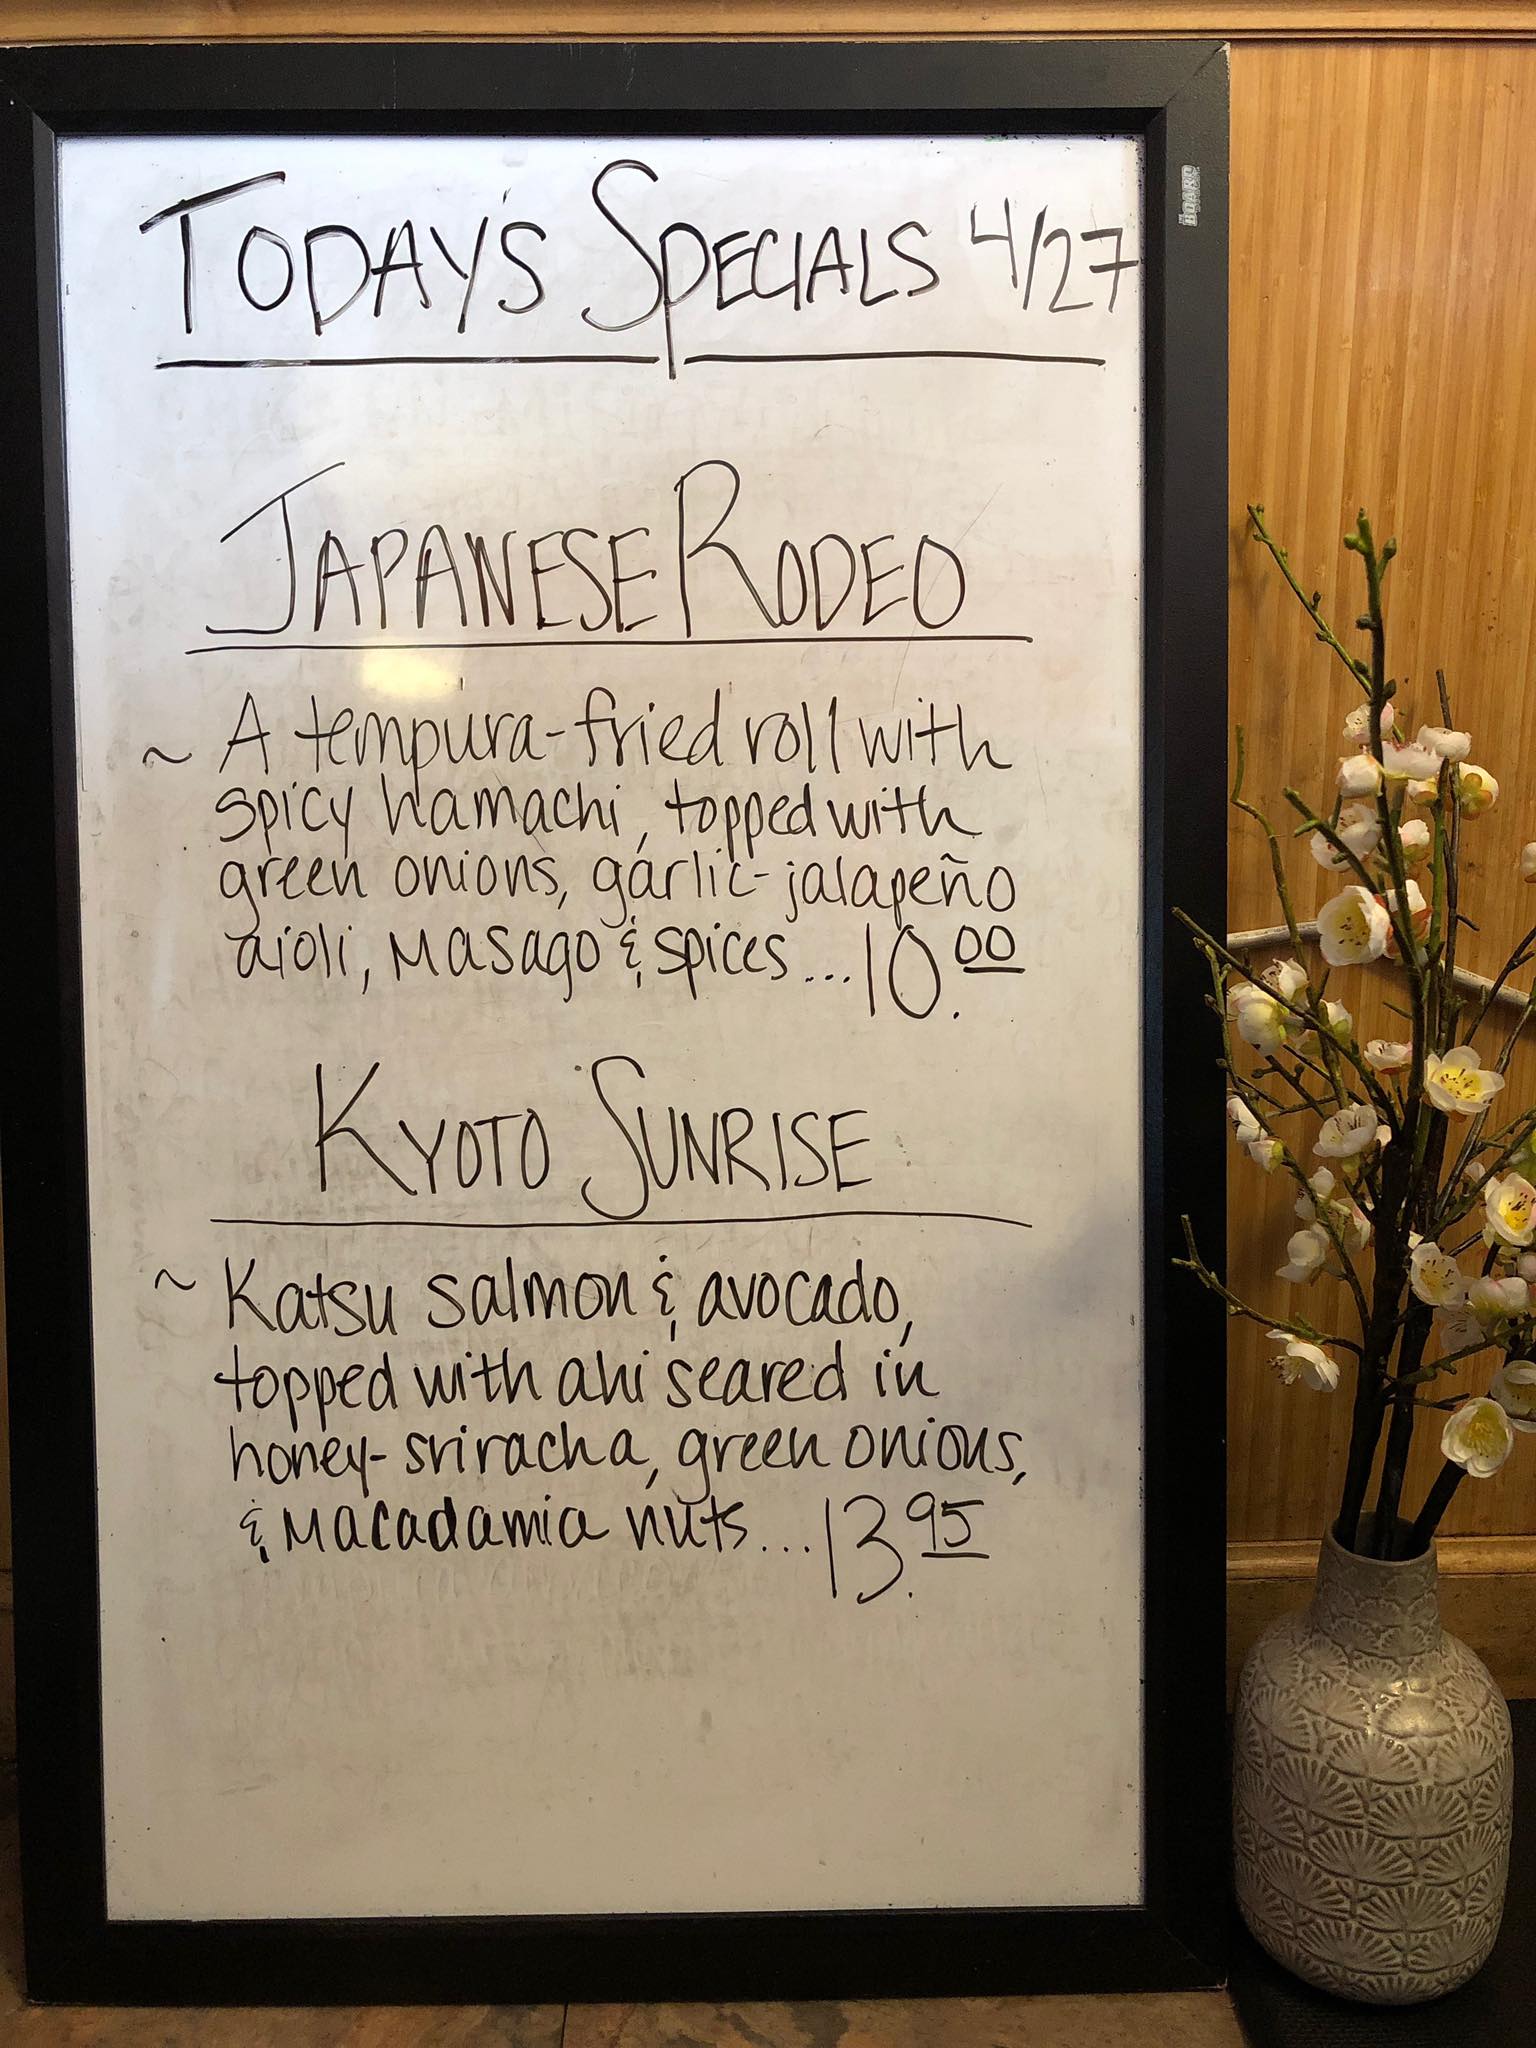 TODAY'S SPECIALS 4/27
JAPANESE RODEO
~ A tempura-fried roll with
spicy hamachi, topped with
green onions, garlic-jalapeño
aioli, masago & spices...10.00
KYOTO SUNRISE
~ Katsu salmon & avocado,
topped with ahi seared in
honey-sriracha, green onions,
& macadamia nuts...13.95
BOARD